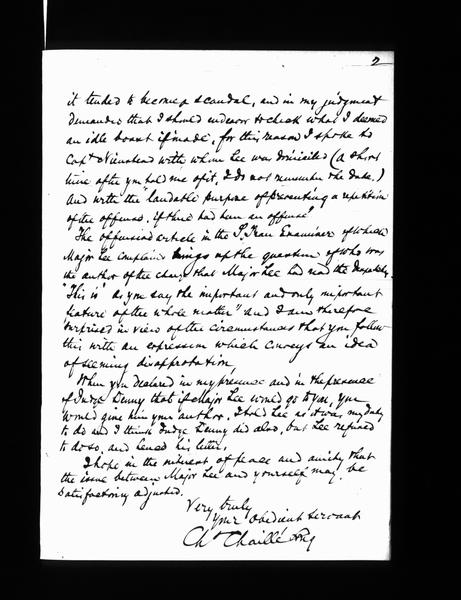 2
it tended to become a scandal, and in my judgment
demanded that I should endeavor to check what I deemed
an idle boast if made, for this reason I spoke to
Capt Nienstead with whom Lee was domiciled (a short
time after you told me of it, I do not remember the date.)
And with the "laudable purpose of preventing a repetition
of the offense, if there had been an offense"
The offensive article in the S. Fran Examiner of which
Major Lee complains brings up the question of who was
the author of the charge that Major Lee had read the Despatches.
"This is" as you say the important and only important
feature of the whole matter" and I am therefore
surprised in view of the circumstances that you follow
this with an expression which conveys an idea
of seeming disapprobation.
When you declared in my presence and in the presence
of Judge Denny that if Major Lee would go to you, you
would give him your author, I told Lee as it was my duty
to do and I think Judge Denny did also, but Lee refused
to do so, and hence his letter.
I hope in the interest of peace and amity that
the issue between Major Lee and yourself may be
satisfactorily adjusted.
Very truly
Your obedient servant
Chs Chaillé Long